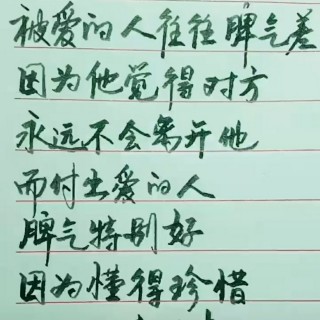 被爱的人往往脾气差
因为他觉得对方
永远不会离开他
而付出爱的人
脾气特别好
因为懂得珍惜